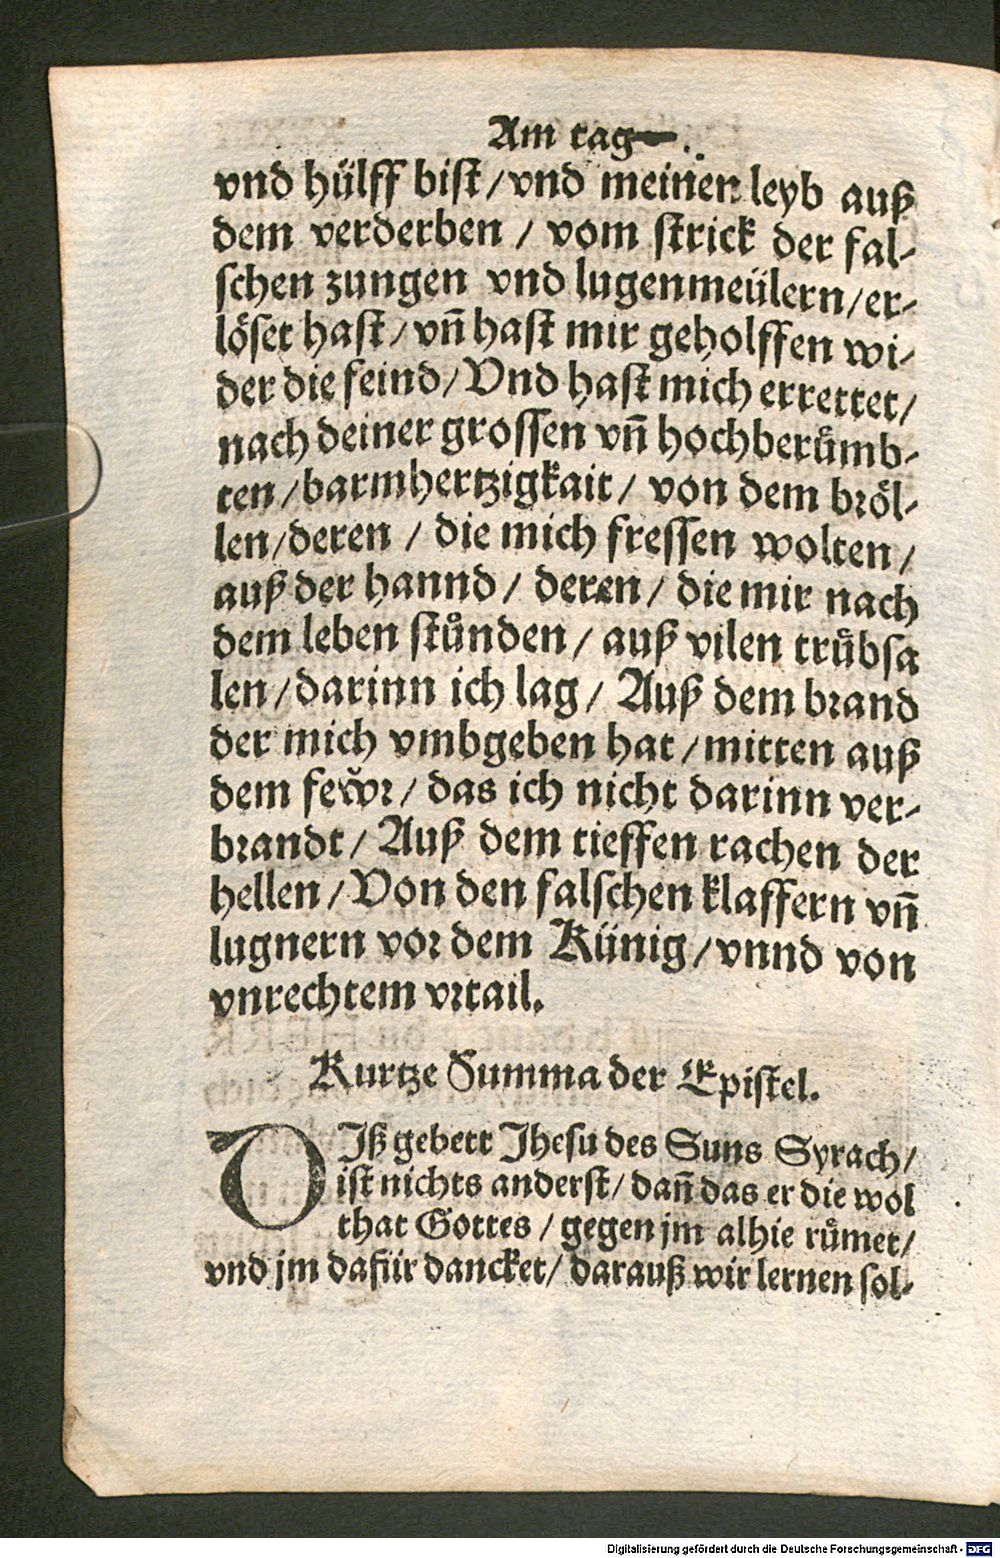 Am tag
vnd hülff bist/vnd meinen leyb auß
dem verderben / vom strick der fal-
schen zungen vnd lugenmeülern/er-
löset hast/vñ hast mir geholffen wi-
der die feind/Vnd hast mich errettet/
nach deiner grossen vñ hochberůmb-
ten/barmhertzigkait/ von dem bröl-
len/deren / die mich fressen wolten/
auß der hannd/ deren/ die mir nach
dem leben stůnden/ auß vilen trůbsa
len/darinn ich lag/ Auß dem brand
der mich vmbgeben hat/mitten auß
dem feẘr/ das ich nicht darinn ver-
brandt/ Auß dem tieffen rachen der
hellen/Von den falschen klaffern vñ
lugnern vor dem Künig/vnnd von
vnrechtem vrtail.
Kurtze Summa der Epistel.
DIß gebett Jhesu des Suns Syrach/
ist nichts anderst/ dañ das er die wol
that Gottes/gegen jm alhie růmet/
vnd jm dafür dancket/ darauß wir lernen sol-
Digitalisierung gefördert durch die Deutsche Forschungsgemeinschaft - DFG